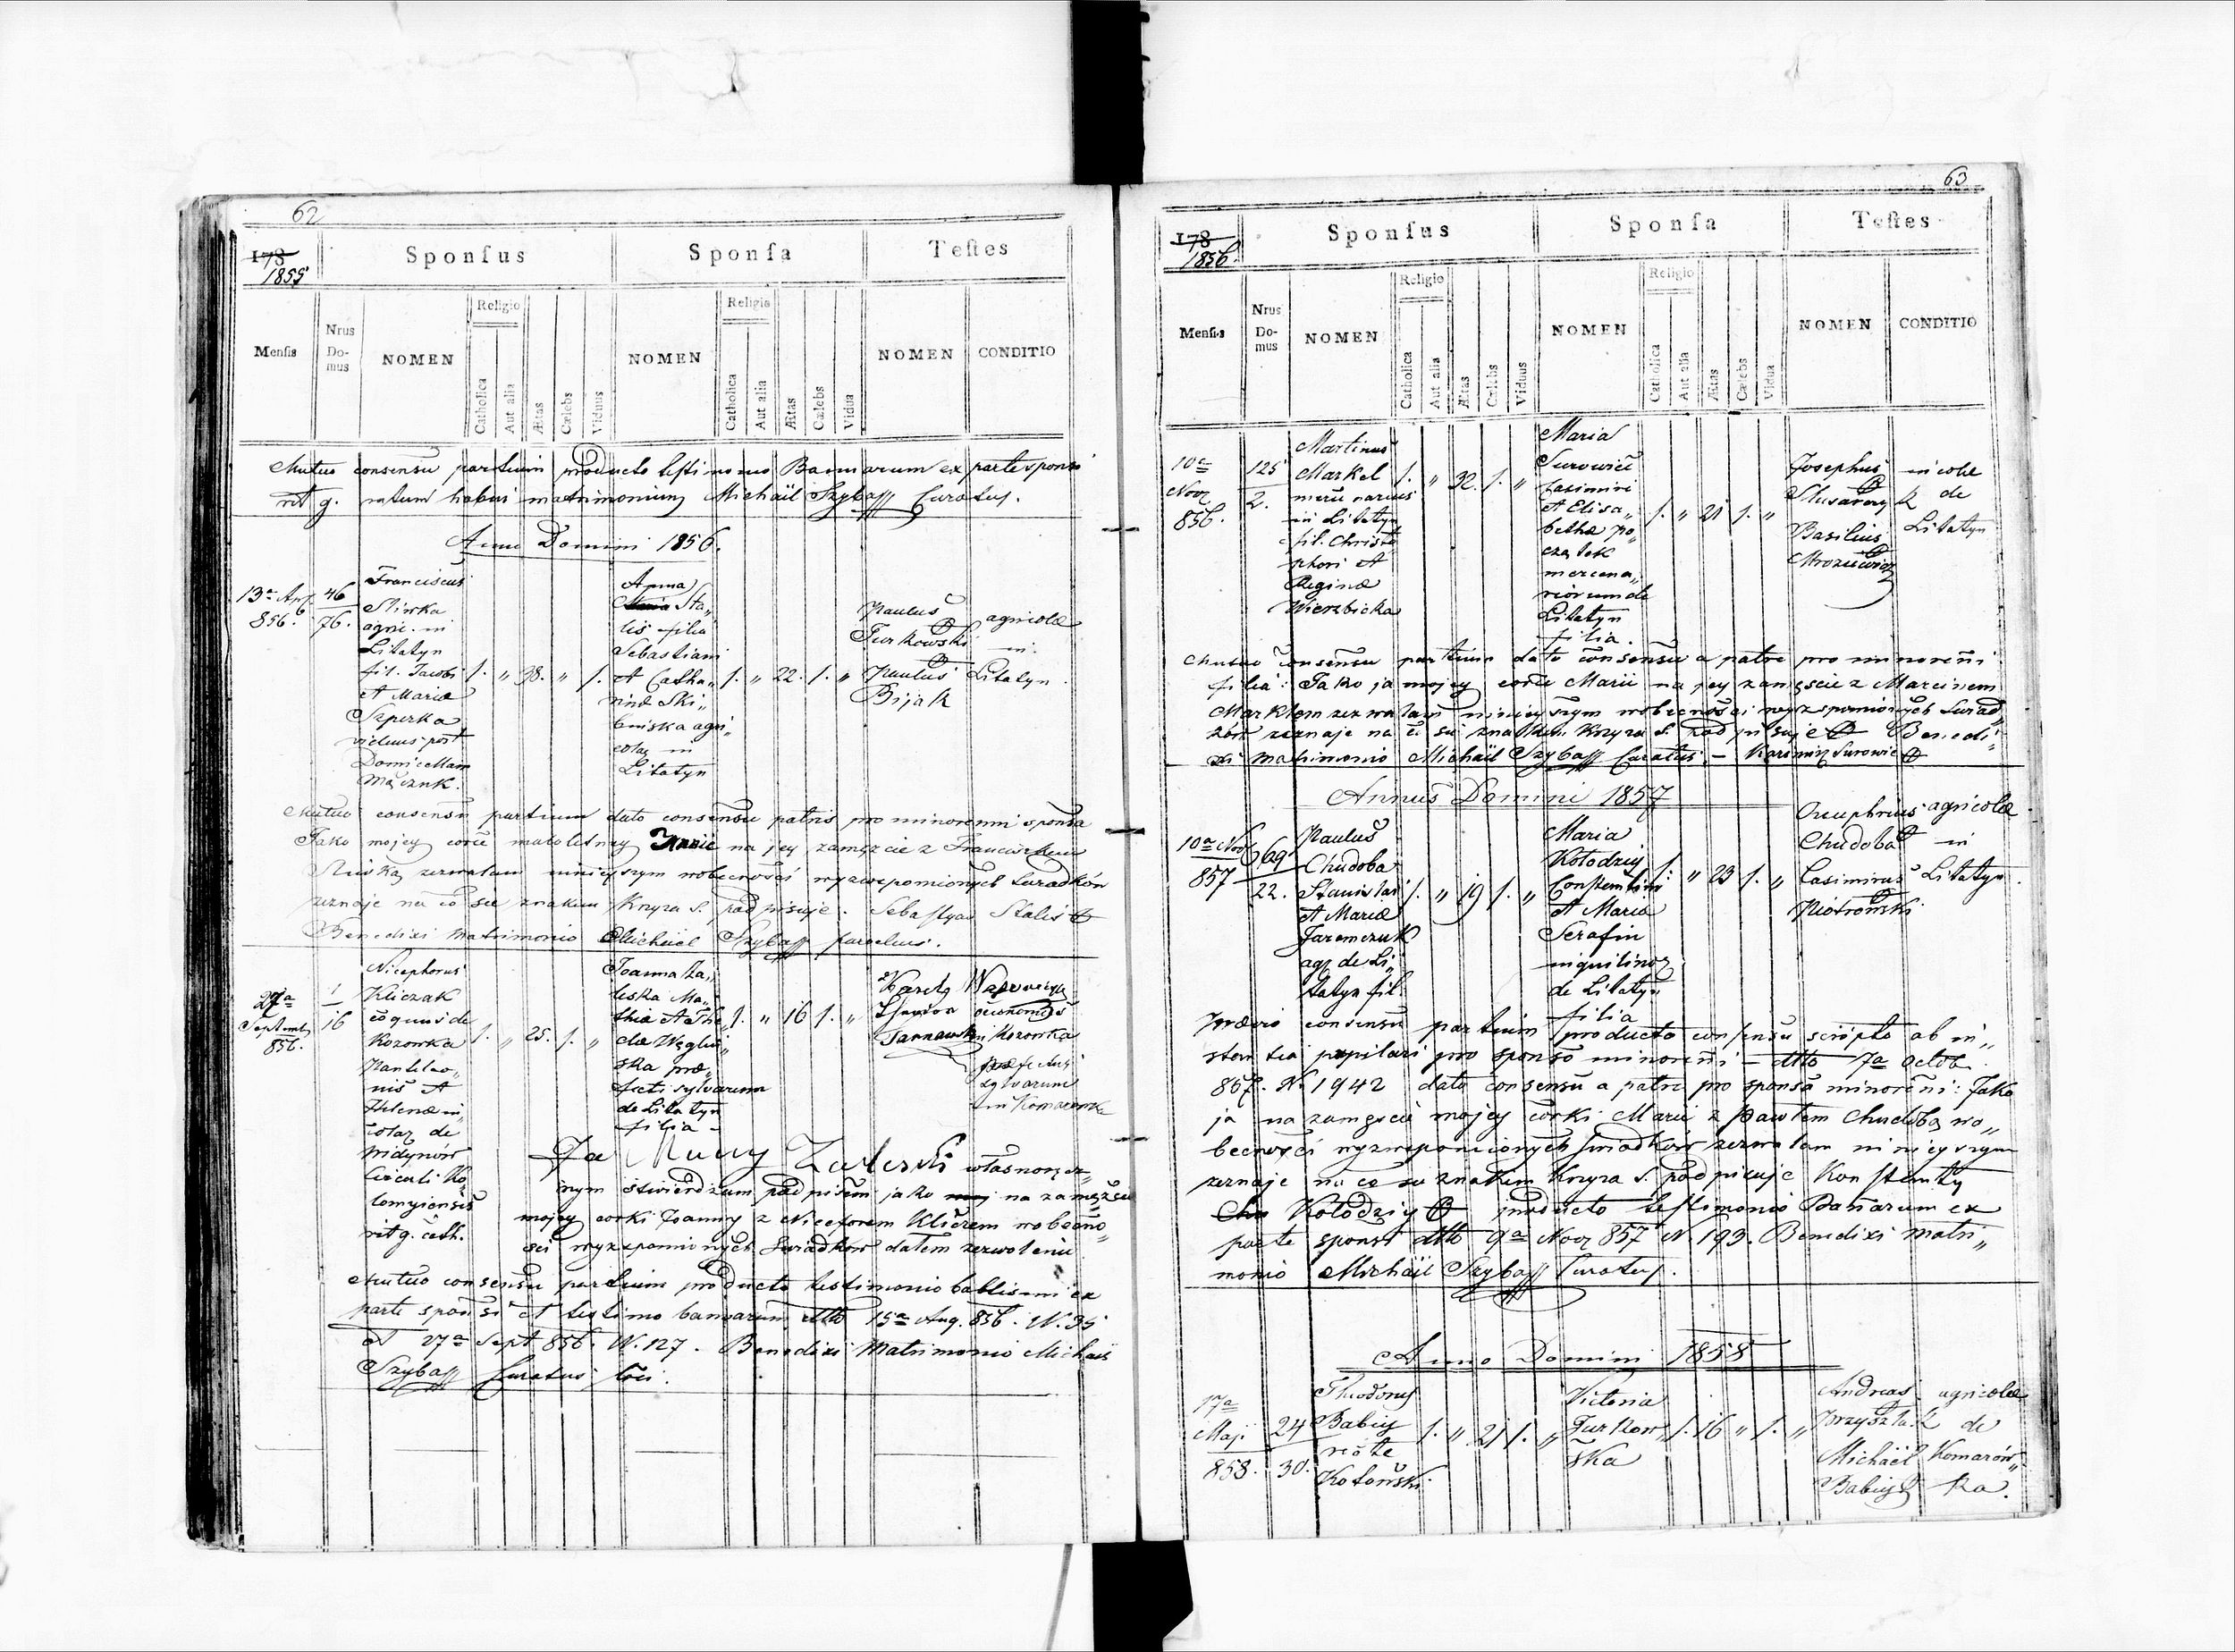 62
178
1855
Sponsus
Sponsa
Testes
Mensis
Nrus Domus
NOMEN
Religio
Catholica
Aut alia
Ætas
Cælebs
Viduus
NOMEN
Religio
Catholica
Aut alia
Ætas
Cælebs
Vidua
NOMEN
CONDITIO
Mutuo consensu partium producto testimonio Bannorum ex parte sponsi
rit g. ratum habui matrimonium Michäil Szybaff Curatus.
Anno Domini 1856.
13a Apr.
856.
46
76.
Franciscus
Sliwka
agric. in
Litatyn
fil. Jacobi
et Mariæ
Szperka
viduus post
Maczuk.
1. " 38. " 1.
Anna
Sta„
lis filia
Sebastiani
et Catha„
rinæ Ski„
bińska agri„
colar. in
Litatyn
1. " 22. 1. "
Paulus
Turkowski
Paulus
Bijak
agricolæ
in
Litatyn.
Mutuo consensu partium dato consensu patris pro minorenni sponsa
Jako mojey corce małoletney Annie na jey zamęzcie z Franciszkiem
Sliwką zezwalam niniejszym wobecnosci wyzwspomionych Swiadków
zeznaje na co sie znakiem Krzyza S. podpisuje. Sebastyan Stalis
Benedixi matrimonio Michäel Szybaff parochus.
27a
Septemb.
856.
1
16
Nicephorus
Kliczak
coquus de
Kozowka
Panteleo„
nis et
Helenæ in„
colar. de
Widynów
Circuli Ko„
lomyiensis
rit g. cath.
1. " 25. 1. "
Joanna Za„
leska Ma„
thiæ et The„
clæ Węgliń„
ska præ„
fecti sylvarum
de Litatyn
filia
1. " 16 1. "
Tarnawski
œconomus
Kozowka
præfectus
sylvarum
in Komarówka
Ja Zaleski własnoręcz„
nym stwierdzam podpisem jako na zamęzcie
mojey corki Joanny z Niceforem Kliczem wobecno„
sci wyzspomionych Swiadkow dałem zezwolenie
Mutuo consensu partium producto testimonio babtismi ex
parte sponsi et testimo bannorum ddto 15a Aug. 856. N. 35
et 27a Sept 856. N. 127. Benedixi Matrimonio Michäil
Szybaff Curatus loci.
63
178
1856.
Sponsus
Sponsa
Testes
Mensis
Nrus Domus
NOMEN
Religio
Catholica
Aut alia
Ætas
Cælebs
Viduus
NOMEN
Religio
Catholica
Aut alia
Ætas
Cælebs
Vidua
NOMEN
CONDITIO
10a
Novr.
856.
125
2.
Martinus
Markel
mercenarius
in Litatyn
fil. Christo
phori et
Reginæ
Wierzbicka
1. " 32. 1. "
Maria
Surowiec
Casimiri
et Elisa„
bethæ Po„
czątek
mercena„
riorum de
Litatyn
filia.
1. " 21 1. "
Josephus
Slusarczyk
Basilius
Mroziewicz
incolæ
de
Litatyn
Mutuo consensu partium dato consensu a patre pro minoreni
filia: Jako ja mojey corce Marii na jey zamęscie z Marcinem
Marklem zezwalam niniejszym wobecnosci wyzspomionych Swiad„
ków zeznaje na co sie znakiem Krzyza S. podpisuje Benedi„
xi matrimonio Michäil Szybaff Curatus. – Kazimirz Surowiec
Annus Domini 1857
10a Novr.
857
69
22.
Paulus
Chudoba
Stanislai
et Mariæ
Jaremczuk
agr. de Li„
tatyn fil.
1. " 19 1. "
Maria
Kołodziy
Constantini
et Mariæ
Serafin
inquilinor.
de Litatyn
filia
1. " 23 1. "
Onuphrius
Chudoba
Casimirus
Piotrowski
agricolæ
in
Litatyn.
Prævio consensu partium producto consensu scripto ab in„
stantia pupilari pro sponso minoreni – ddto 7a Octob.
857. N. 1942 dato consensu a patre pro sponsa minoreni: Jako
ja na zamęscie mojey corki Marii z Pawłem Chudobą wo„
becnosci wyzwspomionych Swiadków zezwalam niniejszym
zeznaje na co sie znakiem Krzyza S. podpisuje Konstanty
Kołodziy producto testimonio Banarum ex
parte sponsi ddto 9a Novr 857 N 193. Benedixi matri„
monio Michäil Szybaff Curatus.
Anno Domini 1858
17a
Maji
858.
24
30.
Theodorus
Babiy
recte
Kotowski.
1. " 21 1. "
Victoria
Turkow„
ska
1. 16 " 1. "
Andreas
Przysztak
Michäel
Babiy
agricolæ
de
Komarów„
ka.